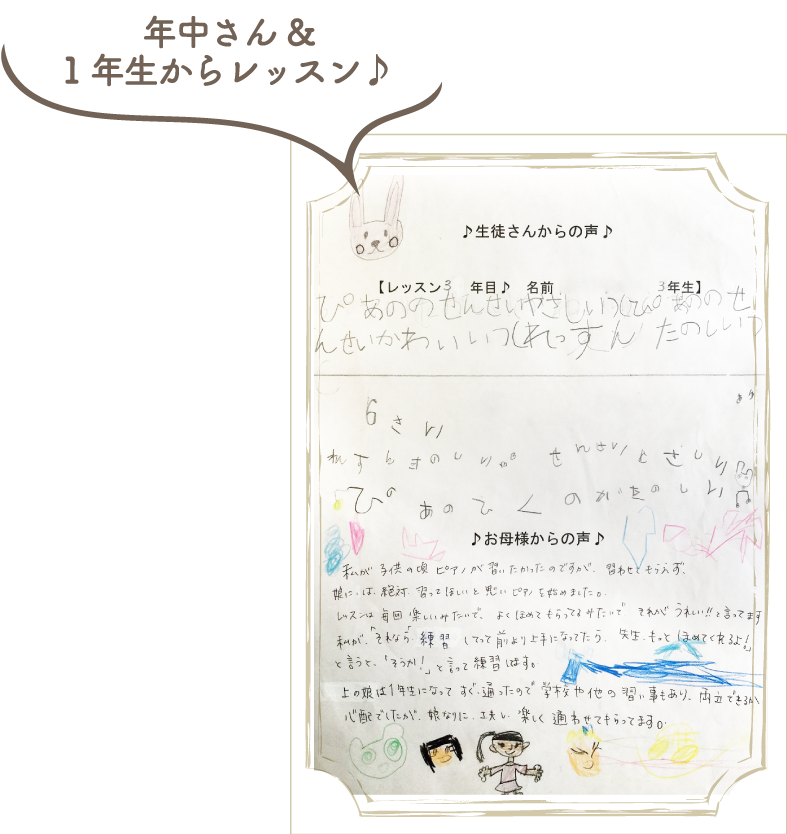 年中さん&
1年生からレッスン♪
♪生徒さんからの声♪
【レッスン3 年目♪ 名前 3年生】
ぴあののせんせいやさしいつしぴあののせ
んせいかわいいつしれっすん たのしいつ
6さい
れすんたのしいゃ せんせい
ぴあのひくのがたのしい
♪お母様からの声♪
私が子供の頃ピアノが習いたかったのですが、習わせてもらえず、
娘には、絶対習ってほしいと思いピアノを始めました。
レッスンは毎回楽しいみたいで、よくほめてもらってるみたいで それがうれしい!!と言ってます
私が、「それなら練習してって前より上手になってたら、先生もっとほめてくれるよ!」
と言うと、「そうか!」と言って練習します。
上の娘は1年生になってすぐ通ったので学校や他の習い事もあり、両立できるか
心配でしたが、娘なりに工夫し楽しく通わせてもらってます。